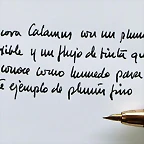 cora Calamus con un plum
xible y un flujo de tinta qu
conoce como humedo para
te ejemplo de plumín fino